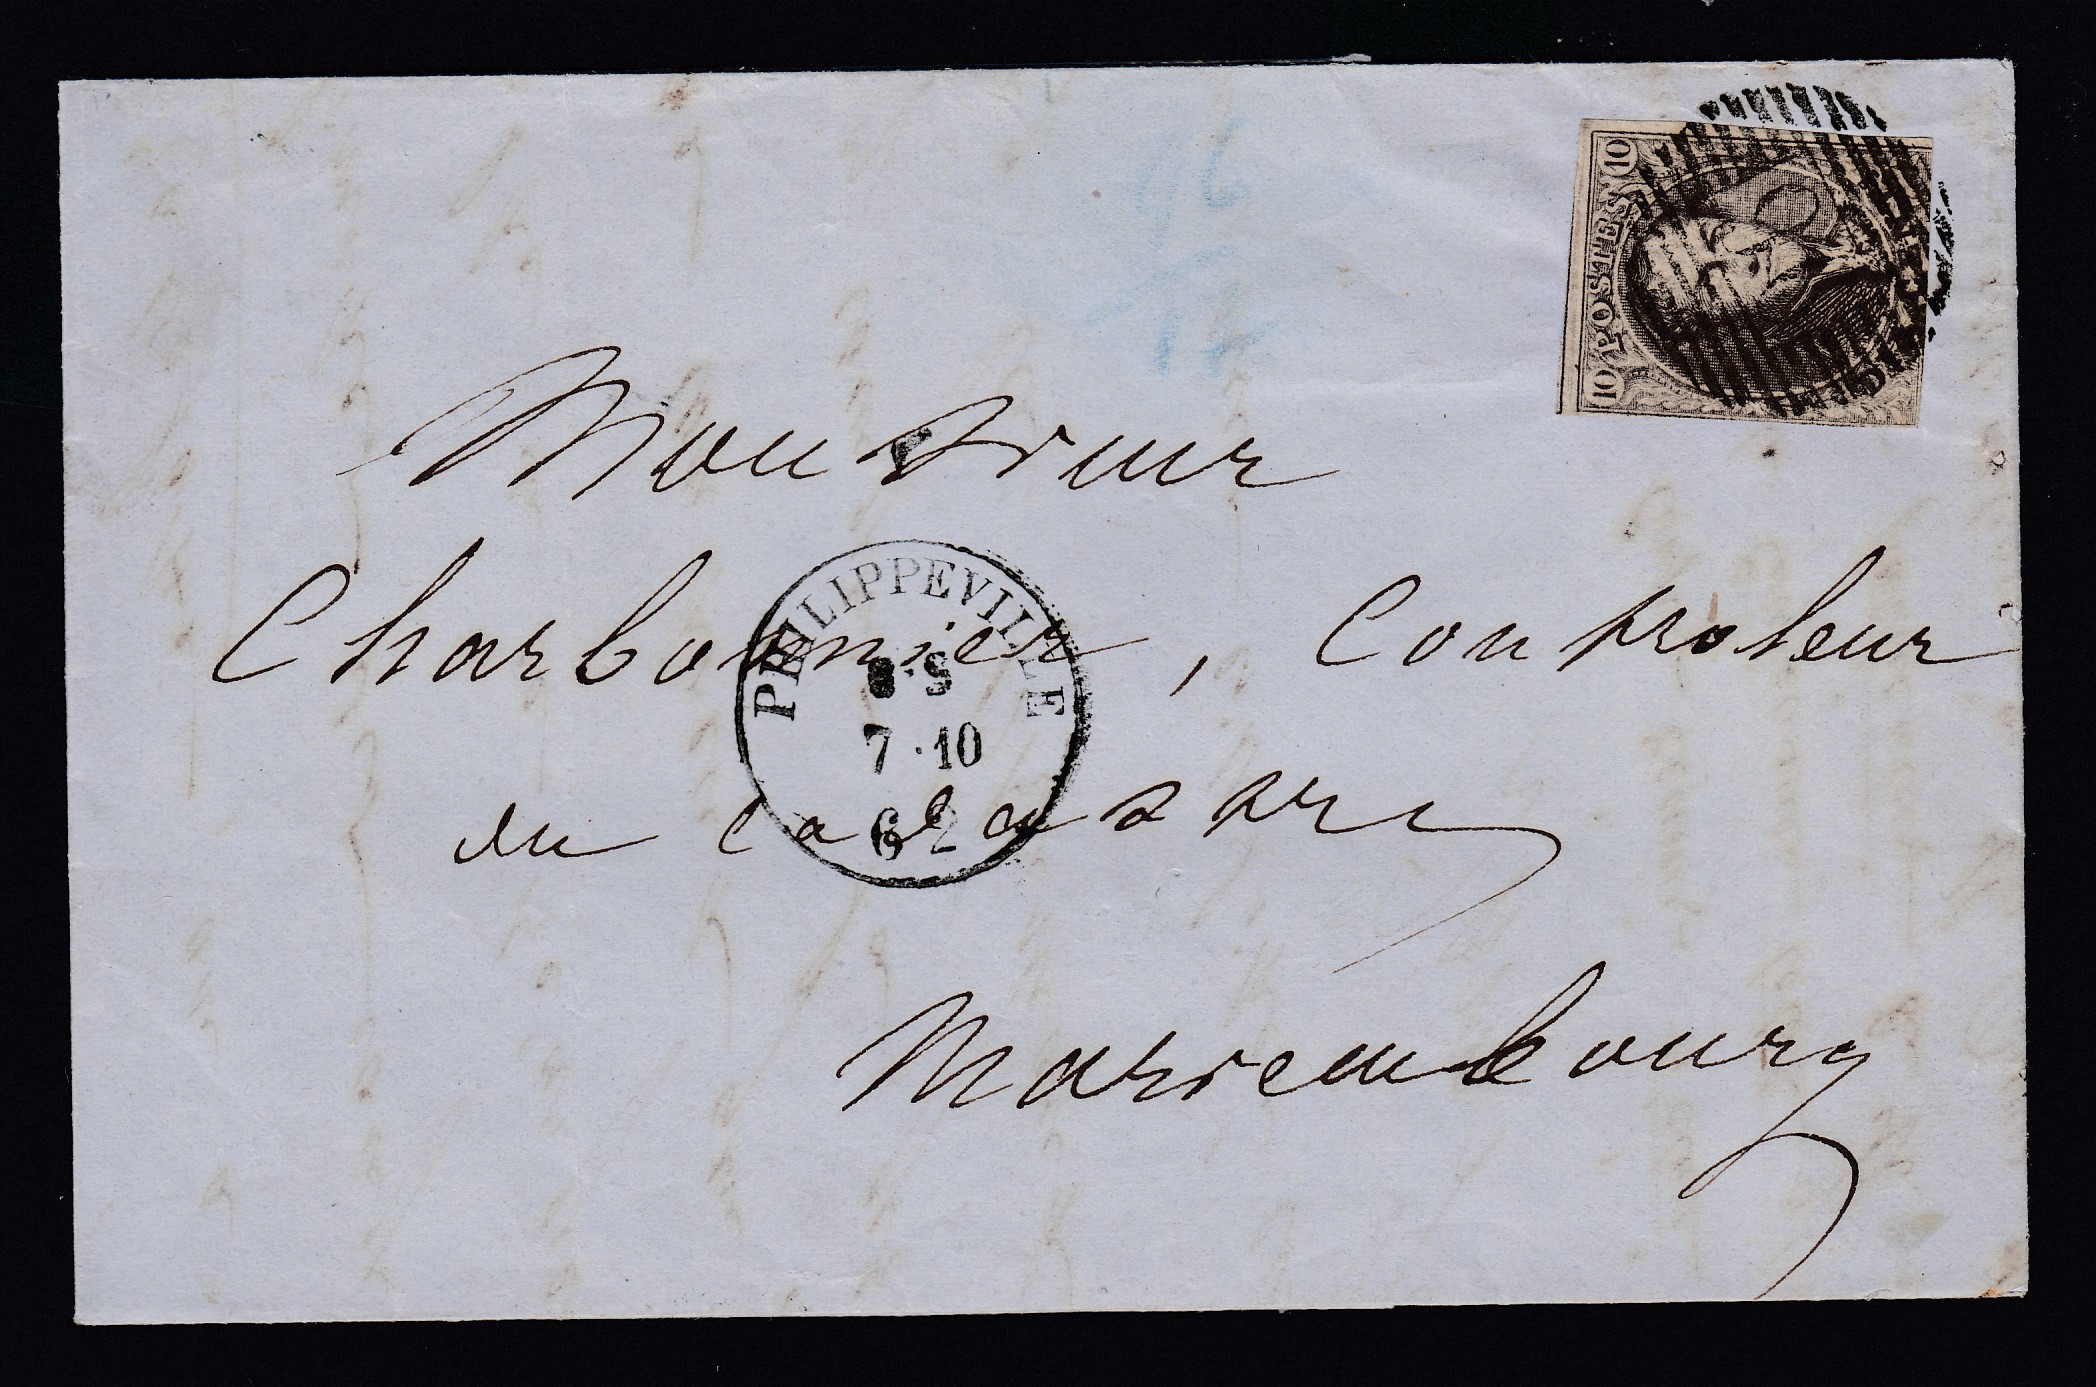 10 POSTES 10
Monsieur
Charbonnier, Controleur
du cadastre
Mariembourg
PHILIPPEVILLE
8·S
7·10
62